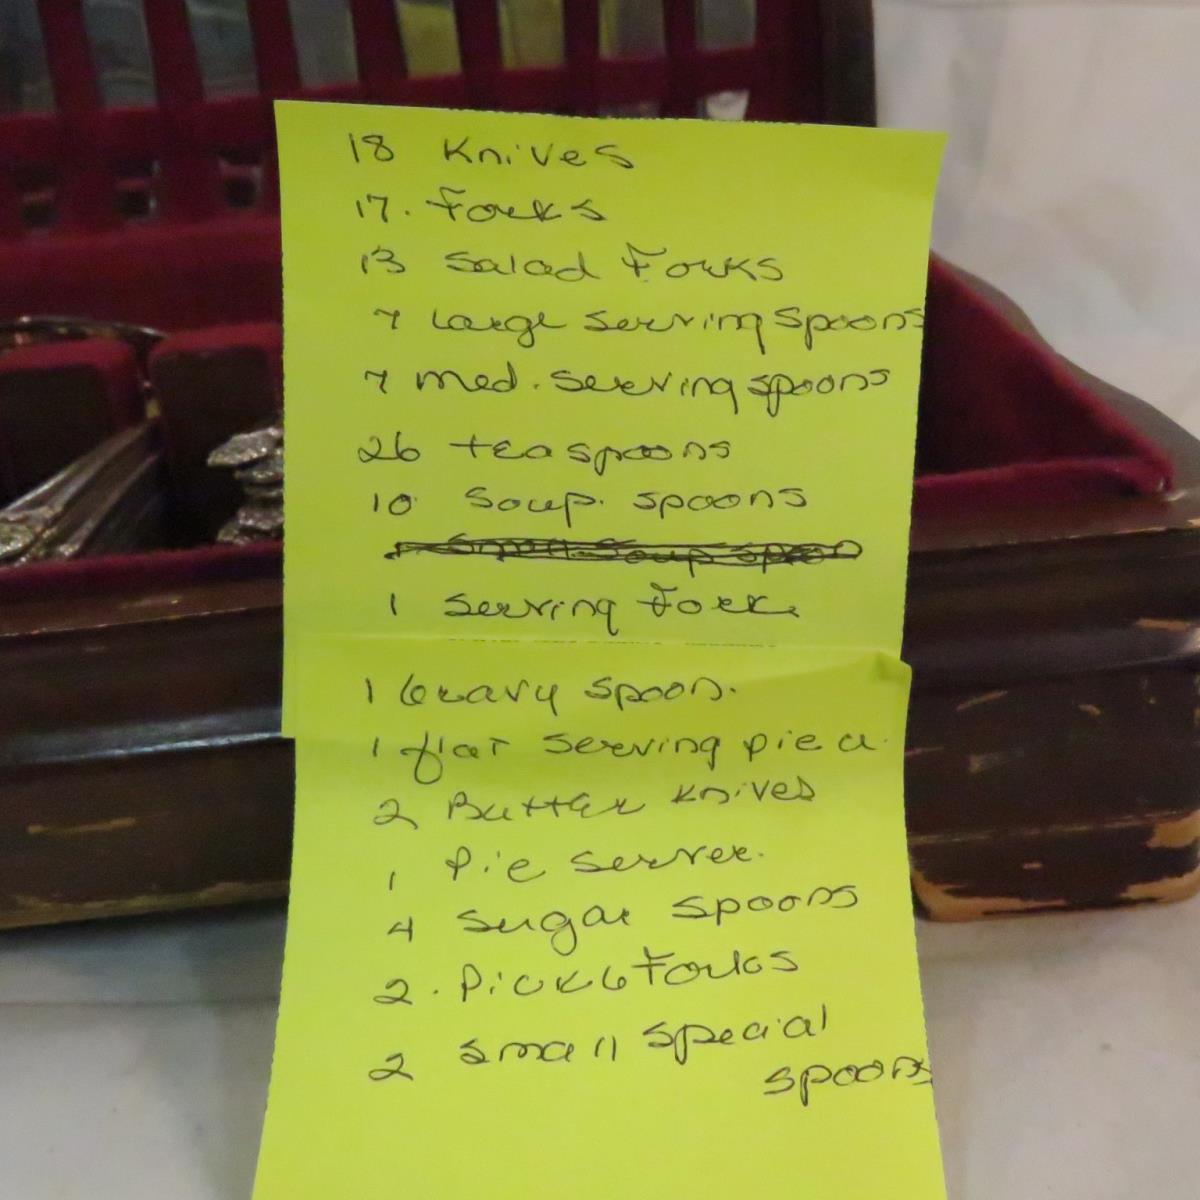 18 Knives
17. Forks
13 Salad Forks
7 Large Serving Spoons
7 med. Serving spoons
26 teaspoons
10 Soup. spoons
1 Serving Fork.
1 Gravy spoon.
1 flat serving piece.
2 Butter Knives
1 Pie Server.
4 Sugar spoons
2. Pickle Forks
2 small special
spoons